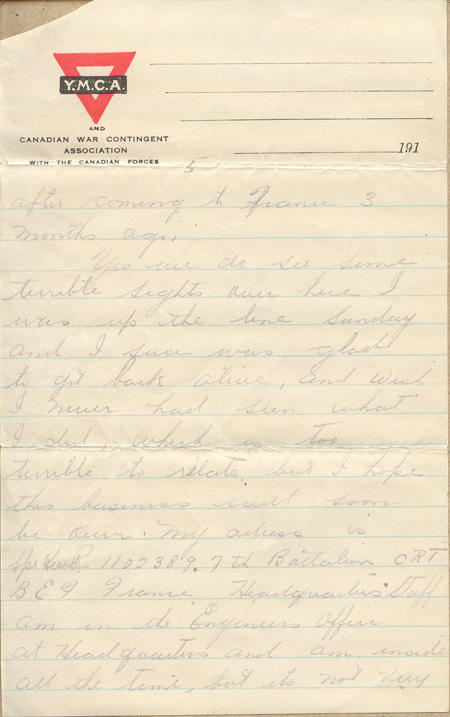 Y.M.C.A.
AND
CANADIAN WAR CONTINGENT
ASSOCIATION
WITH THE CANADIAN FORCES
191
5
after coming to France 3
months ago.
Yes we do see some
terrible sights over here I
was up the line Sunday
and I sure was glad
to git back alive, and wish
I never had seen what
I did, which is too
terrible to relate but I hope
this business will soon
be over. My adress is
1102389. 7th Battalion CRT
B E F France Headquarters Staff
am in the Engineers Office
at Headquarters and am inside
all the time, but its not very